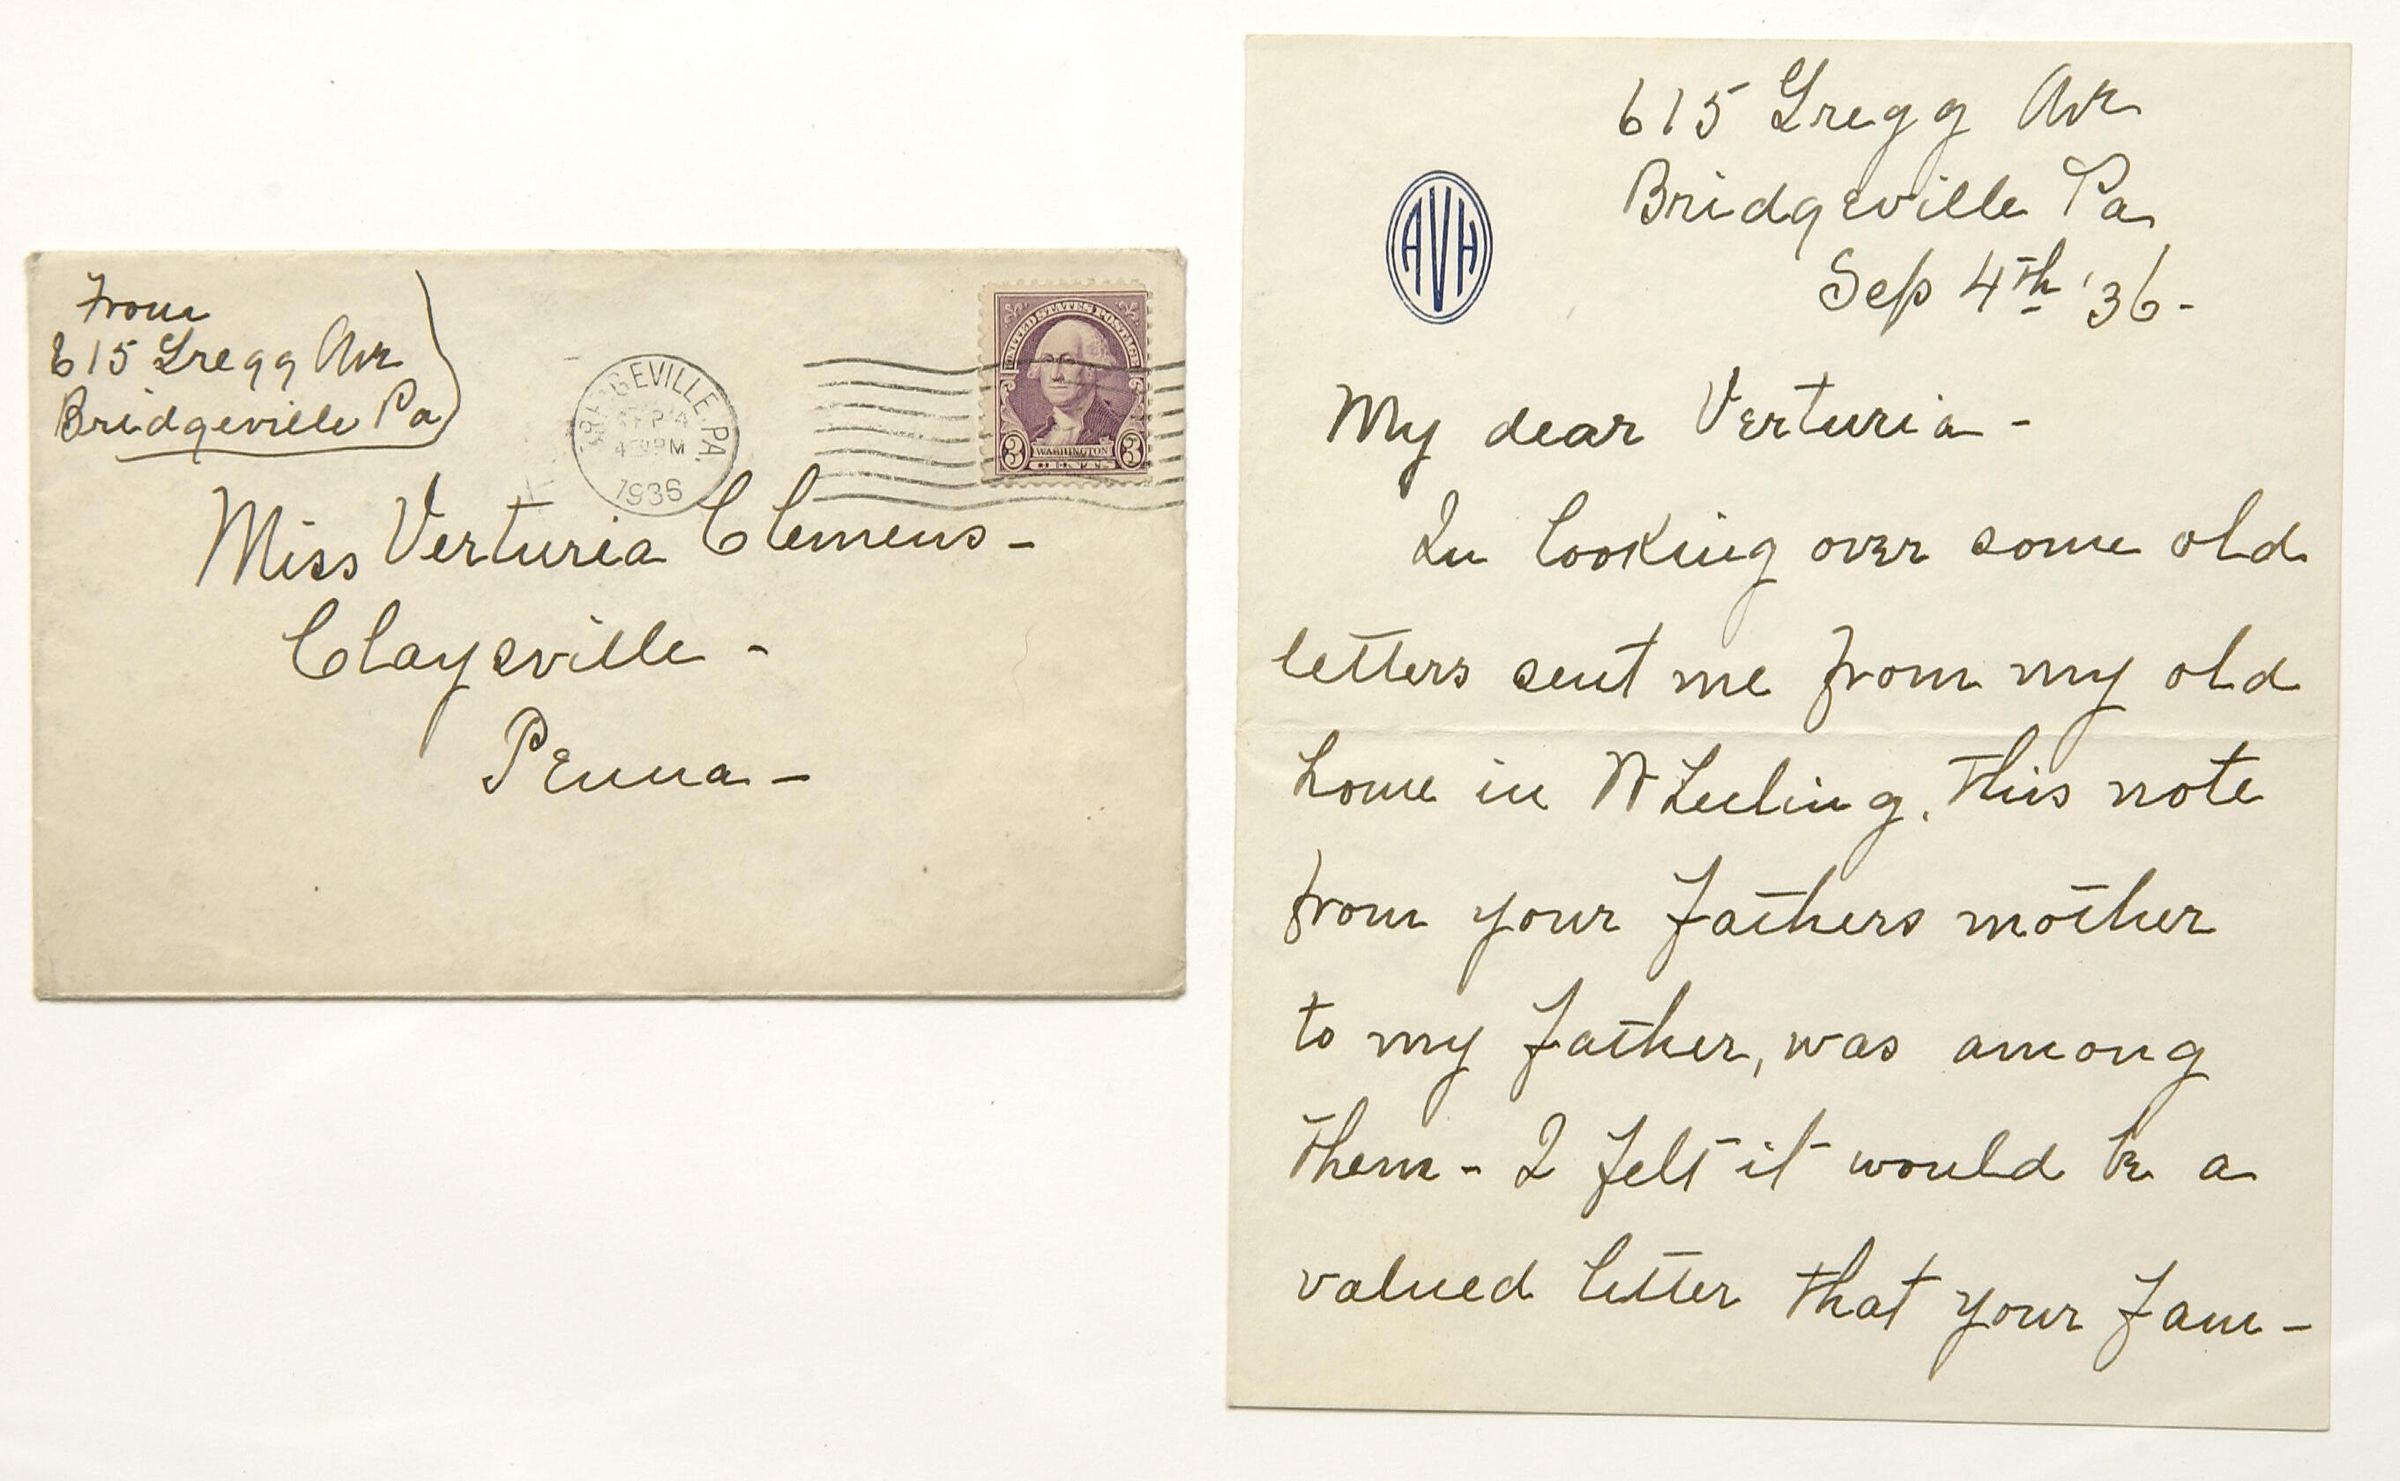 From
615 Gregg Ave
Bridgeville Pa
BRIDGEVILLE, PA.
SEP 4
PM
1936
UNITED STATES POSTAGE
3 WASHINGTON 3
CENTS
Miss Verturia Clemens -
Claysville -
Penna -
615 Gregg Ave
Bridgeville Pa
Sep 4th '36 -
AVH
My dear Verturia -
In looking over some old
letters sent me from my old
home in Wheeling, this note
from your fathers mother
to my father, was among
them - I felt it would be a
valued letter that your fam -